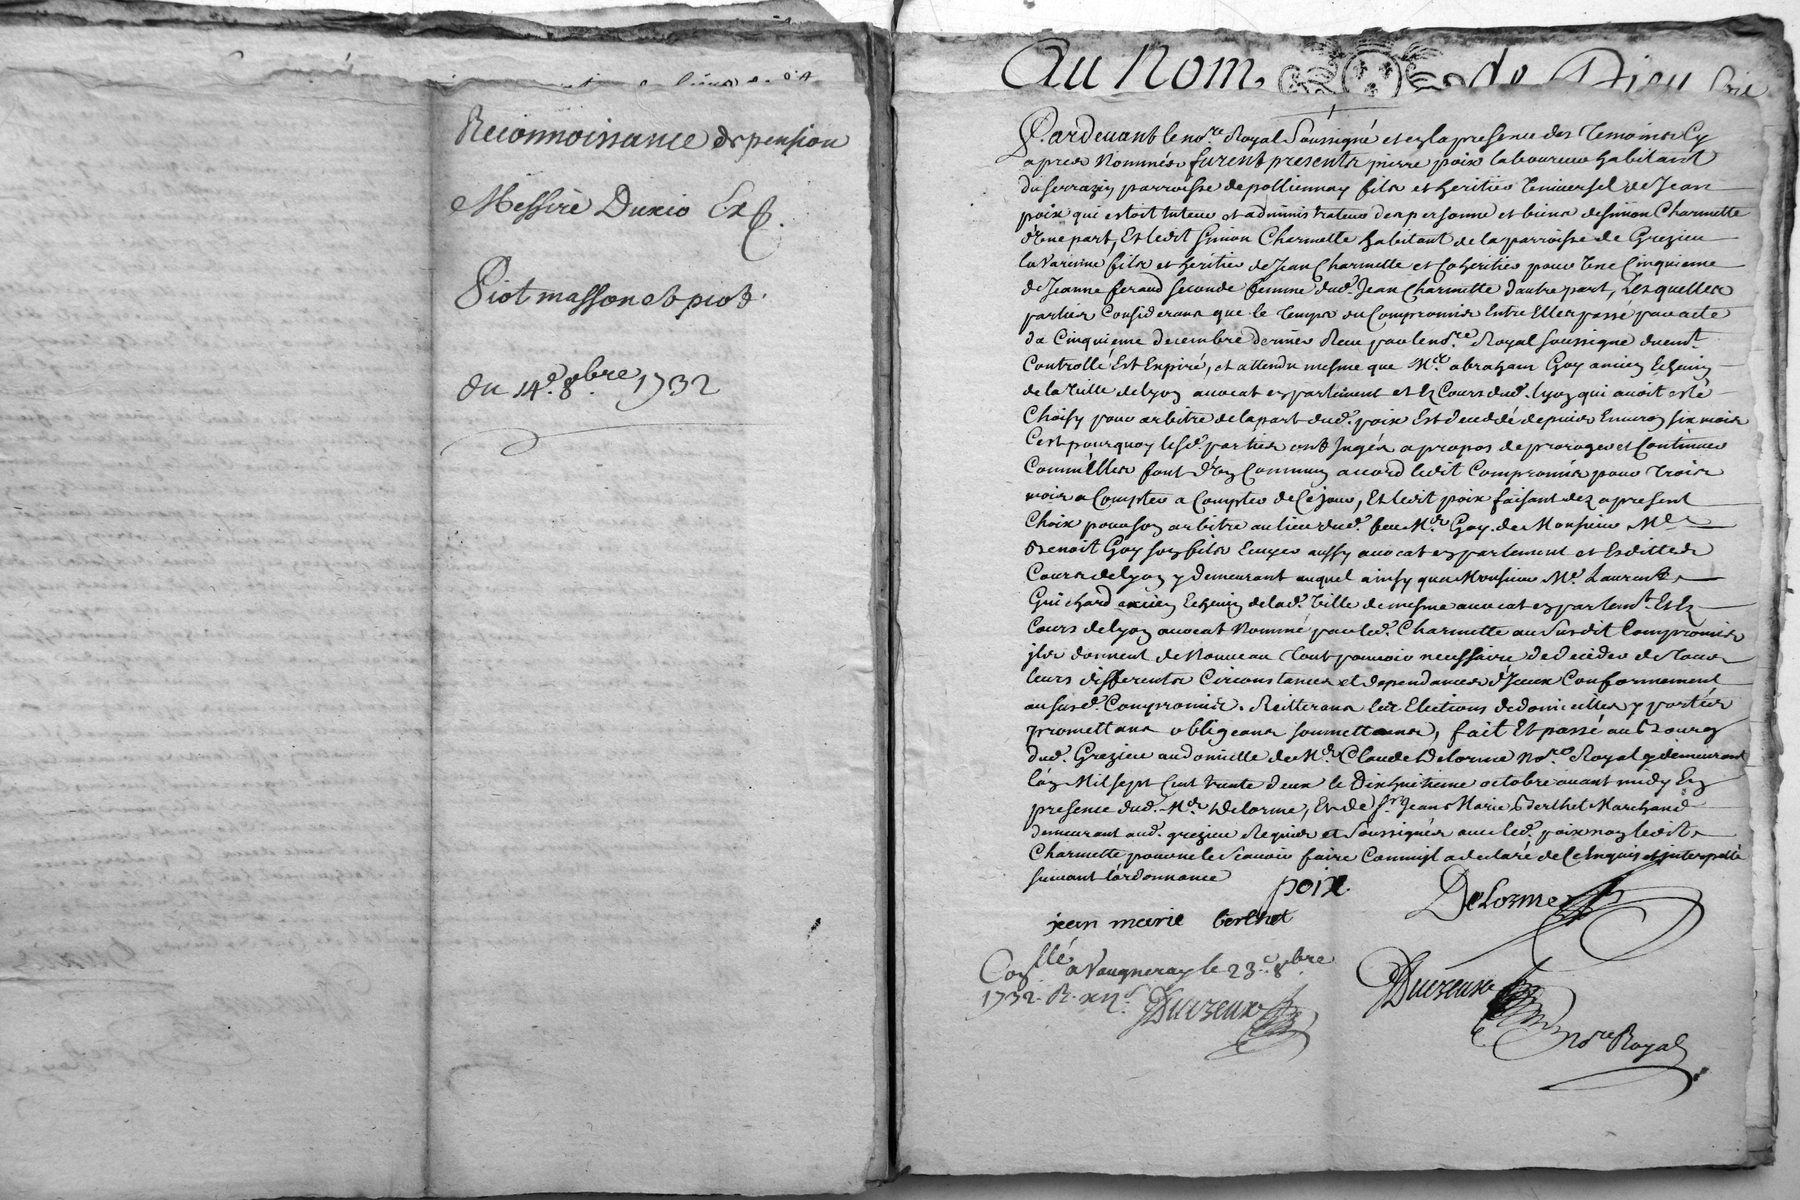 Reconnoissance de pension
Messire Durio
Piot masson et piot
du 14e. 8bre 1732
Au Nom de Dieu
Pardevant le nore Royal Soussigné et en la presence des Temoins Cy
apres Nommés furent presents pierre poix laboureur habitant
du serrazin parroisse de pollionnay fils et heritier Vniversel de Jean
poix qui estoit tuteur et administrateur des personne et biens de Simon Charmette
d'Vne part, Et ledit Simon Charmette habitant de la parroisse de Grezieu
la Varenne fils et heritier de Jean Charmette et Coheritier pour Vne Cinquieme
de Jeanne feraud seconde femme dud. Jean Charmette d'autre part, Lesquelles
parties Considerans que le Temps du Compromis Entre Elles passé par acte
du Cinquieme decembre dernier Receu par le nore Royal soussigné duemt.
Controllé Est Expiré, et attendu mesme que Mre abraham Goy ancien Echevin
de la Ville de Lyon avocat en parlement et Es Cours dud. Lyon qui avoit esté
Choisy pour arbitre de la part dud. poix Est decedé depuis Environ six mois
C'est pourquoy lesd. parties ont Jugés a propos de proroger et Continuer
Comm'Elles font d'Vn Commun accord ledit Compromis pour Trois
mois a Compter a Compter de Ce jour, Et ledit poix faisant dez a present
Choix pour son arbitre au lieu dud. feu Mr. Goy de Monsieur Me
Benoit Goy son fils Ecuyer aussy avocat en parlement et Esdittes
Cours de Lyon y demeurant auquel ainsy qu'a Monsieur Me. Laurent
Guichard ancien Echevin de lad. Ville de mesme avocat en parlemt. Et Es
Cours de Lyon avocat Nommé par led. Charmette au Susdit Compromis
jls donnent de Nouveau Tout pouvoir necessaire de decider de Tous
leurs differents Circonstances et dependances d'Jceux Conformement
au susd. Compromis. Reitterans les Elections de domicilles y portées
promettans obligeans soumettans, fait Et passé au Bourg
dud. Grezieu au domicille de Mr. Claude Delorme nore Royal y demeurant
l'an Mil sept Cent trente deux le Dixhuitieme octobre avant midy En
presence dud. Mr. Delorme, Et de Sr. Jean Marie Berthet Marchand
demeurant aud. grezieu Requis et Soussignés avec led. poix non ledit
Charmette pour ne le Scavoir faire Comm'jl a declaré de Ce Enquis et interpellé
suivant l'ordonnance
poix
Delorme
jean marie berthet
Conllé a Vaugneray le 23e. 8bre
1732. R. xii s.
Ducreux
Ducreux
nore Royal